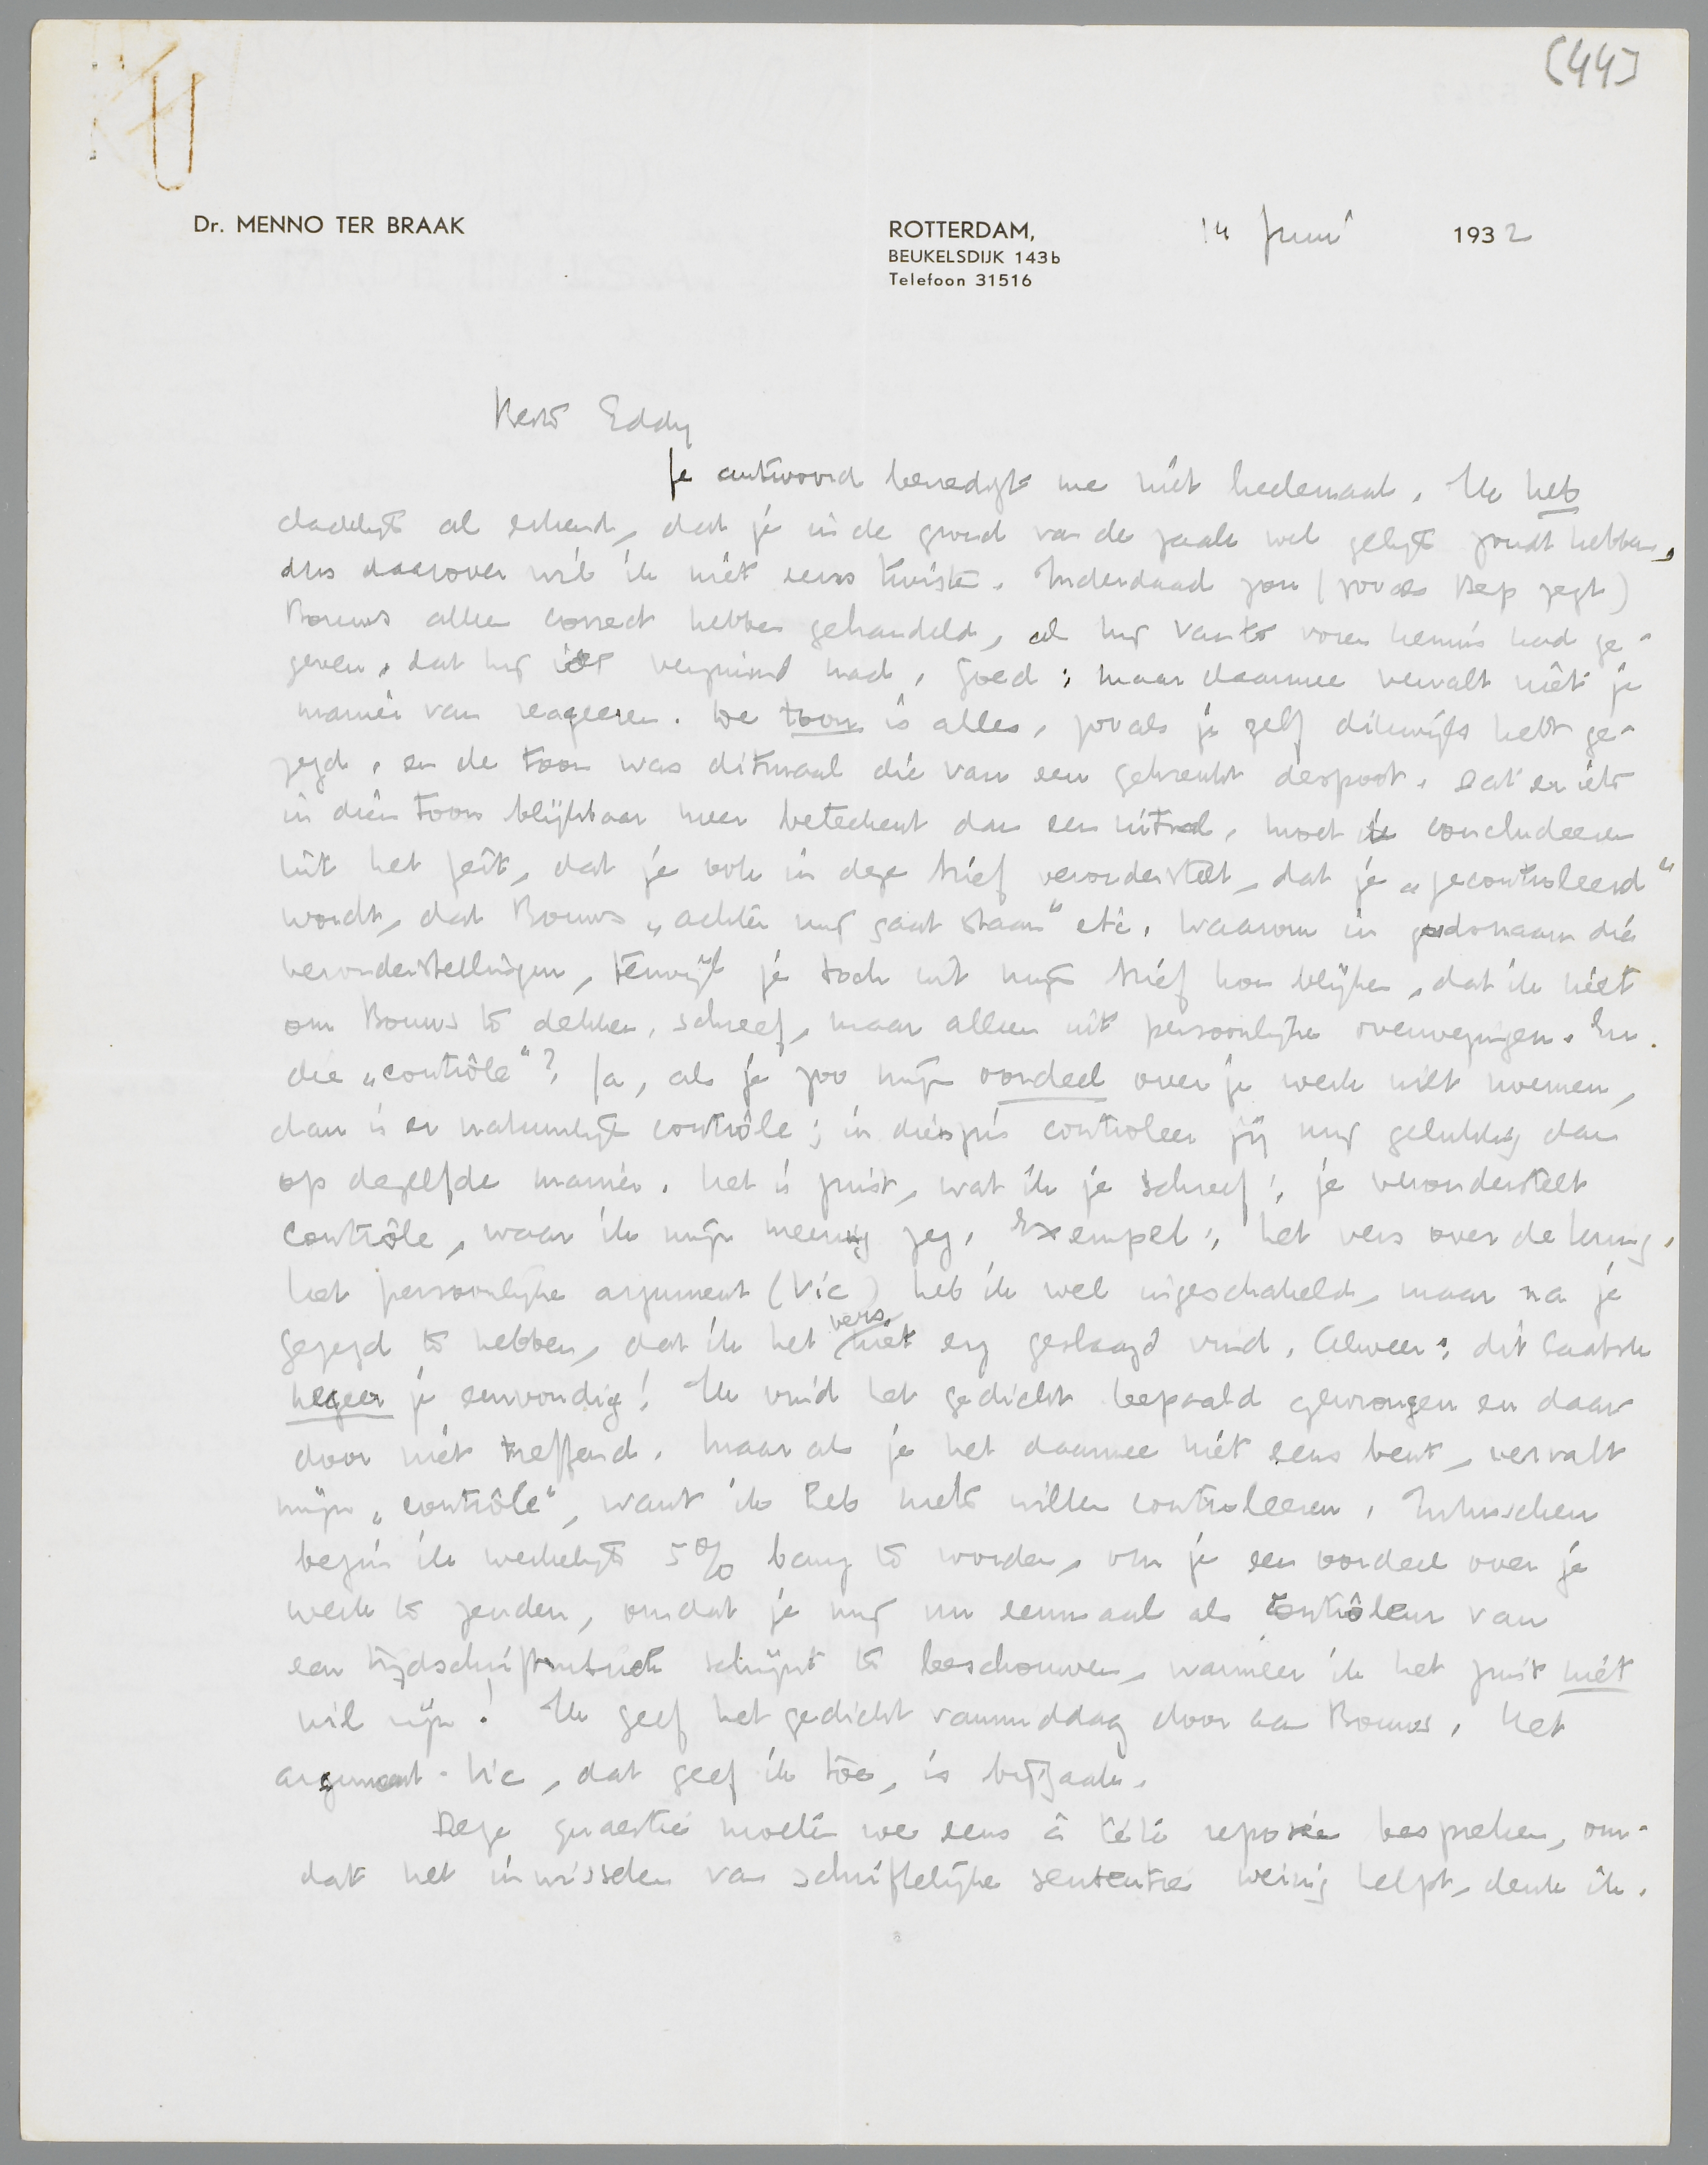 [44]
Dr. MENNO TER BRAAK
ROTTERDAM, 14 Juni 1932
BEUKELSDIJK 143b
Telefoon 31516
Beste Eddy
Je antwoord bevredigt me niet heelemaal. Ik heb
dadelijk al erkend, dat je in de grond van de zaak wel gelijk zoudt hebben,
dus daarover wil ik niet eens twisten. Inderdaad zou (zooals Bep zegt)
Bouws alleen correct hebben gehandeld, als hij van te voren kennis had ge-
geven, dat hij iets verzuimd had. Goed; maar daarmee vervalt niet je
manier van reageeren. De toon is alles, zooals je zelf dikwijls hebt ge-
zegd, en de toon was ditmaal die van een gekrenkt despoot. Dat er iets
in dien toon blijkbaar meer beteekent dan een uitval, moet ik concludeeren
uit het feit, dat je ook in deze brief veronderstelt, dat je „gecontroleerd"
wordt, dat Bouws „achter mij gaat staan" etc. Waarom in godsnaam die
veronderstellingen, terwijl je toch uit mijn brief kon blijken, dat ik niet
om Bouws te dekken, schreef, maar alleen uit persoonlijke overwegingen. En
die „contrôle"? Ja, als je zoo mijn oordeel over je werk wilt noemen,
dan is er natuurlijk contrôle; in dien zin controleer jij mij gelukkig dan
op dezelfde manier. Het is juist, wat ik je schreef: je veronderstelt
contrôle, waar ik mijn meening zeg. Exempel: het vers over de kring.
Het persoonlijke argument (Vic) heb ik wel ingeschakeld, maar na je
gezegd te hebben, dat ik het vers niet erg geslaagd vind. Alweer: dit laatste
negeer je eenvoudig! Ik vind het gedicht bepaald gewrongen en daar-
door niet treffend. Maar als je het daarmee niet eens bent, vervalt
mijn „contrôle", want ik heb niets willen controleeren. Intusschen
begin ik werkelijk 5% bang te worden, om je een oordeel over je
werk te zenden, omdat je mij nu eenmaal als contrôleur van
een tijdschriftrubriek schijnt te beschouwen, wanneer ik het juist niet
wil zijn! Ik geef het gedicht vanmiddag door aan Bouws. Het
argument-Vic, dat geef ik toe, is bijzaak.
Deze quaestie moeten we eens à tête reposée bespreken, om-
dat het inwisselen van schriftelijke sententies weinig helpt, denk ik.